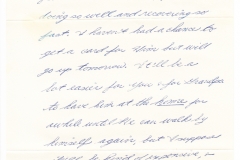 doing so well and recovering so
fast. I haven't had a chance to
get a card for him but will
go up tomorrow. It'll be a
lot easier for you & for Grandpa
to have him at the home for
awhile until he can walk by
himself again, but I suppose